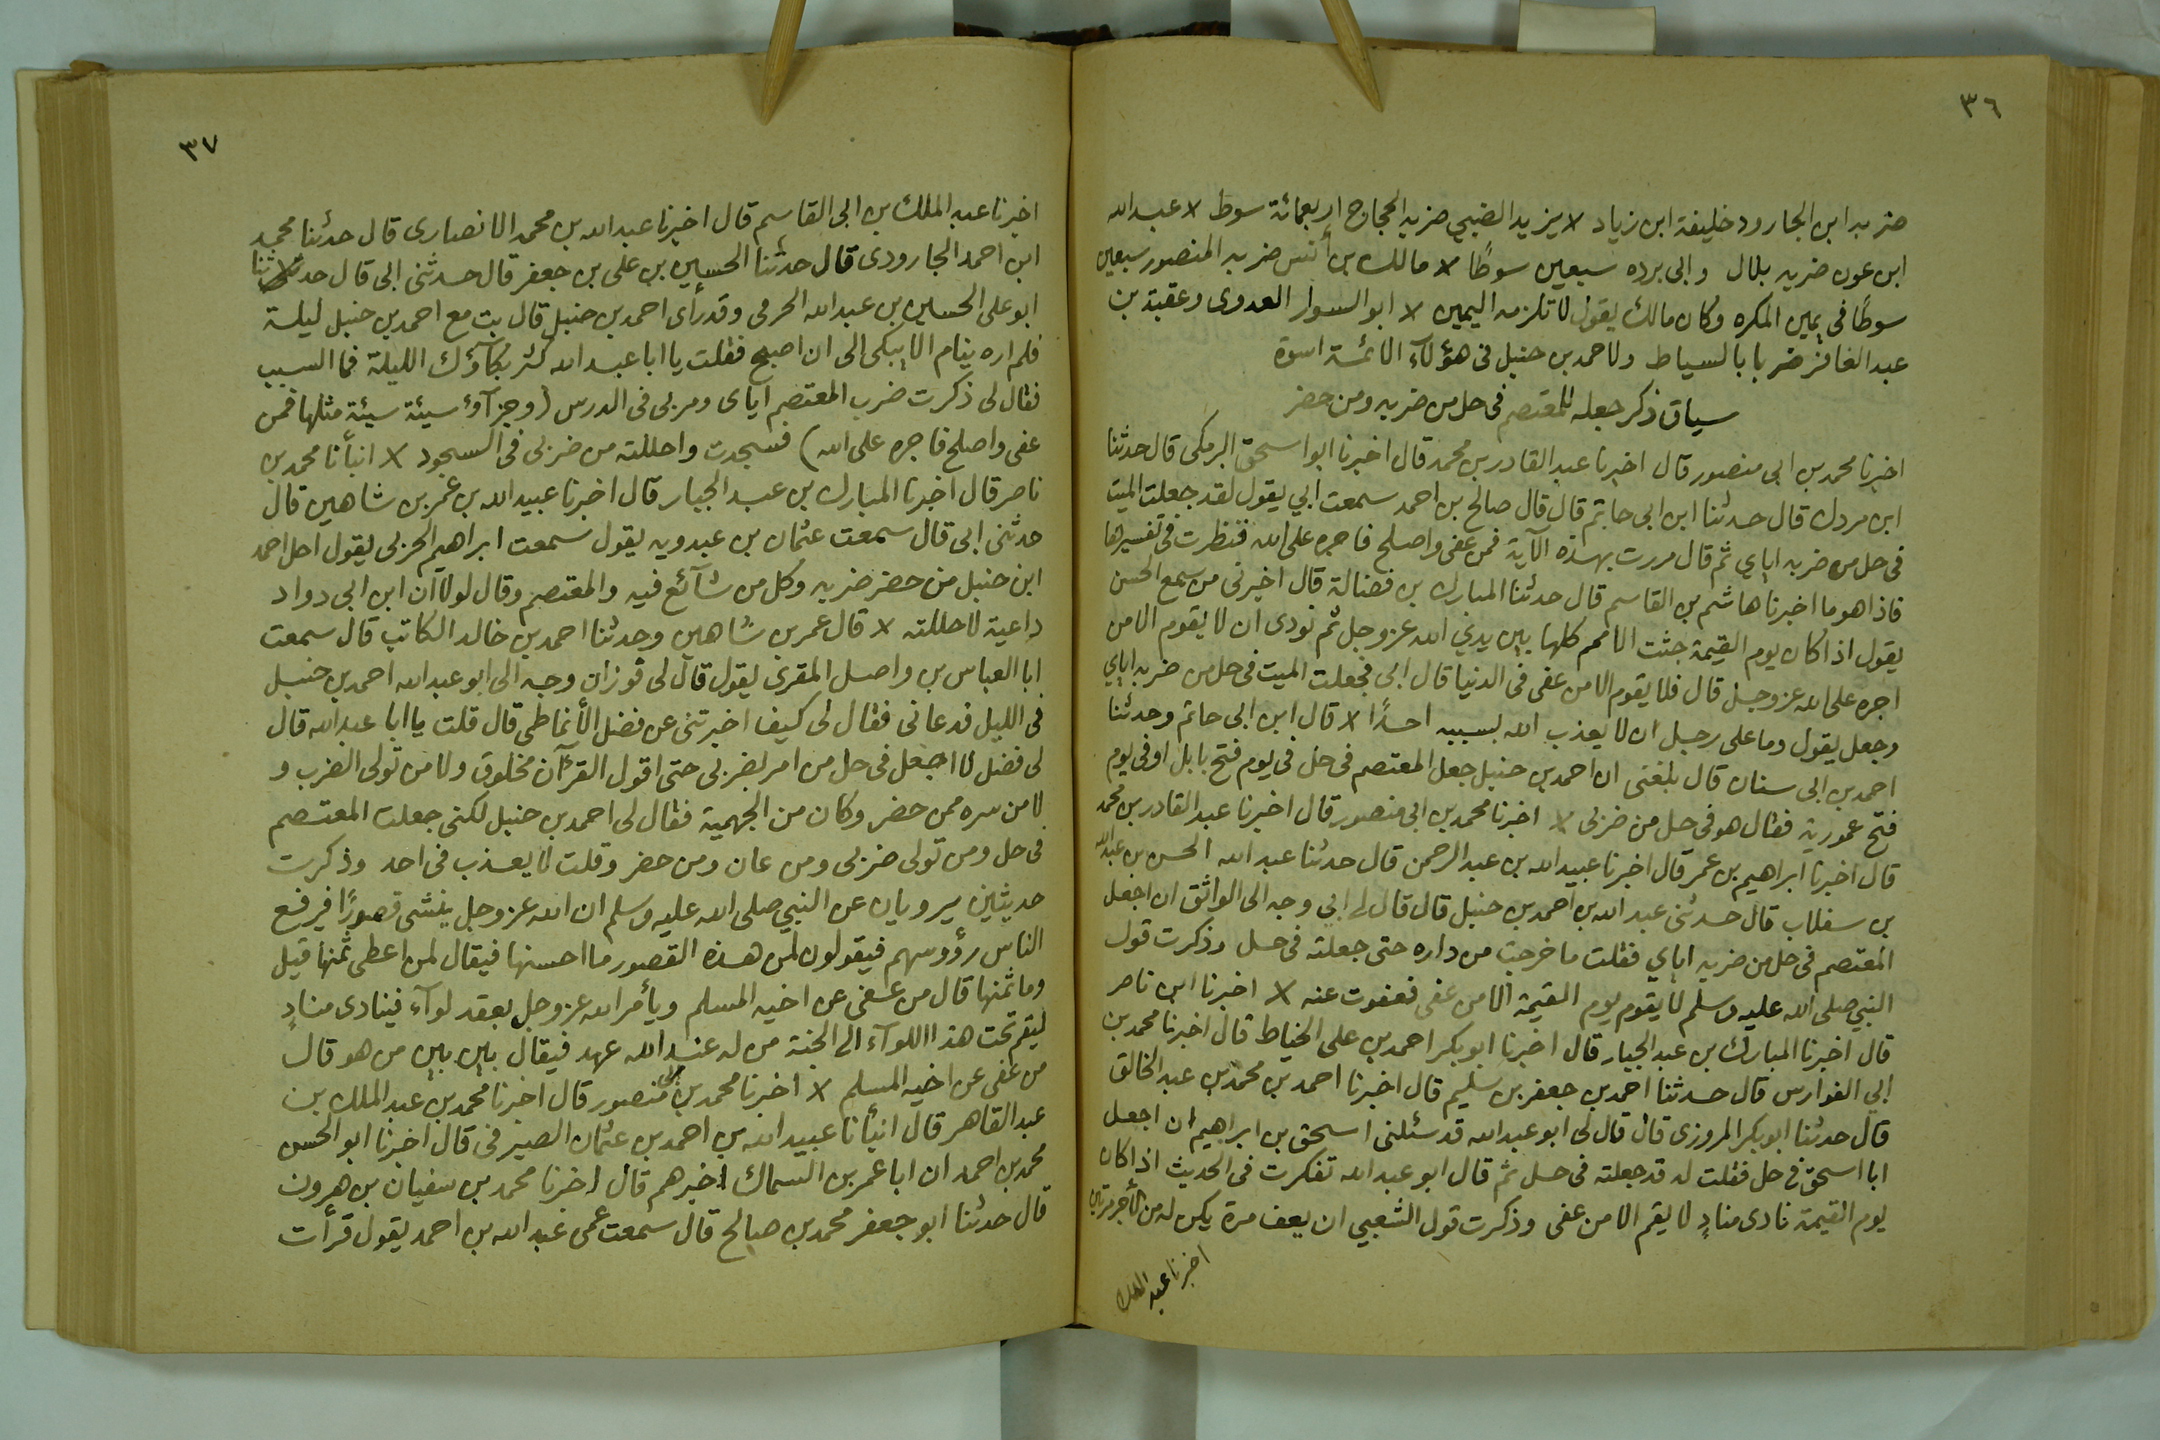 ٣٦
ضربه ابن الجارود خليفة ابن زياد لا يزيد الضبي ضربه الحجاج اربعمائة سوط لا عبدالله
ابن عون ضربه بلال وابى برده سبعين سوطًا لا مالك بن أنس ضربه المنصور سبعين
سوطًا فى يمين المكره وكان مالك يقول لا تلزمه اليمين لا ابو السوار العدوى وعقبة بن
عبد الغافر ضربا بالسياط ولاحمد بن حنبل فى هؤلآء الائمة اسوة
سياق ذكر جعله للمعتصم فى حل من ضربه ومن حضر
اخبرنا محمد بن ابى منصور قال اخبرنا عبد القادر بن محمد قال اخبرنا ابو اسحق البرمكى قال حدثنا
ابن مردك قال حدثنا ابن ابى حاتم قال قال صالح بن احمد سمعت ابي يقول لقد جعلت الميت
فى حل من ضربه اياي ثم قال مررت بهذه الآية فمن عفى واصلح فاجره على الله فنظرت فى تفسيرها
فاذا هو ما اخبرنا هاشم بن القاسم قال حدثنا المبارك بن فضالة قال اخبرنى من سمع الحسن
يقول اذا كان يوم القيمة جثت الامم كلها بين يدي الله عز وجل ثم نودى ان لا يقوم الا من
اجره على الله عز وجل قال فلا يقوم الا من عفى فى الدنيا قال ابى فجعلت الميت فى حل من ضربه اياي
وجعل يقول وما على رجل ان لا يعذب الله بسببه احدًا لا قال ابن ابى حاتم وحدثنا
احمد بن ابى سنان قال بلغنى ان احمد بن حنبل جعل المعتصم فى حل فى يوم فتح بابل او فى يوم
فتح عمورية فقال هو فى حل من ضربى لا اخبرنا محمد بن ابى منصور قال اخبرنا عبد القادر بن محمد
قال اخبرنا ابراهيم بن عمر قال اخبرنا عبيد الله بن عبد الرحمن قال حدثنا عبد الله الحسن بن عبد الله
بن سفلاب قال حدثنى عبد الله بن احمد بن حنبل قال قال لى ابي وجه الى الواثق ان اجعل
المعتصم فى حل من ضربه اياي فقلت ما خرجت من داره حتى جعلته فى حل وذكرت قول
النبي صلى الله عليه وسلم لا يقوم يوم القيمة الا من عفى فعفوت عنه لا اخبرنا ابن ناصر
قال اخبرنا المبارك بن عبد الجبار قال اخبرنا ابو بكر احمد بن على الخياط قال اخبرنا محمد بن
ابي الفوارس قال حدثنا احمد بن جعفر بن سليم قال اخبرنا احمد بن محمد بن عبد الخالق
قال حدثنا ابو بكر المروزى قال قال لى ابو عبد الله قد سئلنى اسحق بن ابراهيم ان اجعل
ابا اسحق فى حل فقلت له قد جعلته فى حل ثم قال ابو عبد الله تفكرت فى الحديث اذا كان
يوم القيمة نادى منادٍ لا يقم الا من عفى وذكرت قول الشعبي ان يعف مرة يكن له من الأجر مرتين
اخبرنا عبد الملك
٣٧
اخبرنا عبد الملك بن ابى القاسم قال اخبرنا عبد الله بن محمد الانصارى قال حدثنا محمد
ابن احمد الجارودى قال حدثنا الحسين بن على بن جعفر قال حدثنى ابى قال حدثنا
ابو على الحسين بن عبد الله الحرمى وقد رأى احمد بن حنبل قال بت مع احمد بن حنبل ليلة
فلم اره ينام الا يبكى الى ان اصبح فقلت يا ابا عبد الله كثر بكآؤك الليلة فما السبب
فقال لى ذكرت ضرب المعتصم اياى ومر بى فى الدرس (وجزآؤ سيئة سيئة مثلها فمن
عفى واصلح فاجره على الله) فسجدت واحللته من ضربى فى السجود لا انبأنا محمد بن
ناصر قال اخبرنا المبارك بن عبد الجبار قال اخبرنا عبيد الله بن عمر بن شاهين قال
حدثنى ابى قال سمعت عثمان بن عبدويه يقول سمعت ابراهيم الحربى يقول احل احمد
ابن حنبل من حضر ضربه وكل من شآئع فيه والمعتصم وقال لولا ان ابن ابى دواد
داعية لاحللته لا قال عمر بن شاهين وحدثنا احمد بن خالد الكاتب قال سمعت
ابا العباس بن واصل المقرى يقول قال لى قوزان وجه الى ابو عبد الله احمد بن حنبل
فى الليل فدعانى فقال لى كيف اخبرتنى عن فضل الأنماطى قال قلت يا ابا عبد الله قال
لى فضل لا اجعل فى حل من امر بضربى حتى اقول القرآن مخلوق ولا من تولى الضرب و
لا من سره ممن حضر وكان من الجهمية فقال لى احمد بن حنبل لكنى جعلت المعتصم
فى حل ومن تولى ضربى ومن عان ومن حضر وقلت لا يعذب فى احد وذكرت
حديثين يرويان عن النبي صلى الله عليه وسلم ان الله عز وجل ينشى قصورًا فيرفع
الناس رؤوسهم فيقولون لمن هذه القصور ما احسنها فيقال لمن اعطى ثمنها قيل
وما ثمنها قال من عفى عن اخيه المسلم ويأمر الله عز وجل بعقد لوآء فينادى منادٍ
ليقم تحت هذا اللوآء الى الجنة من له عند الله عهد فيقال بين بين من هو قال
من عفى عن اخيه المسلم لا اخبرنا محمد بن ابى منصور قال اخبرنا محمد بن عبد الملك بن
عبد القاهر قال انبأنا عبيد الله بن احمد بن عثمان الصيرفى قال اخبرنا ابو الحسن
محمد بن احمد ان ابا عمر بن السماك اخبرهم قال اخبرنا محمد بن سفيان بن هرون
قال حدثنا ابو جعفر محمد بن صالح قال سمعت عمى عبد الله بن احمد يقول قرأت